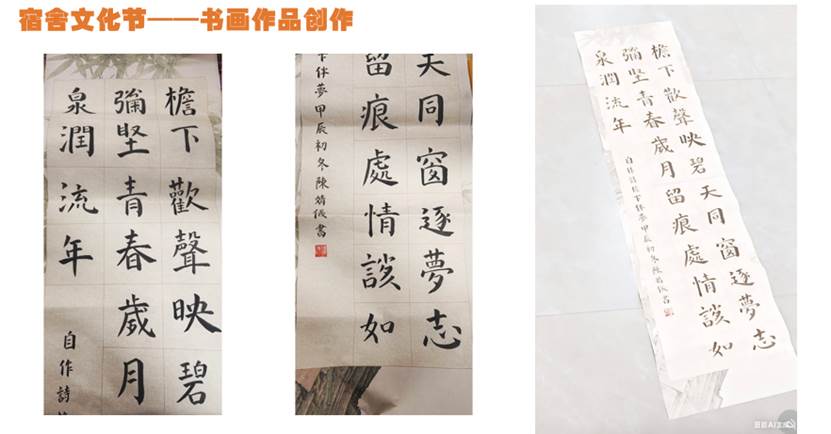 宿舍文化节——书画作品创作
檐下歡聲映碧
彌堅青春歲月
泉潤流年
自作詩
天同窗逐夢志
留痕處情談如
下伴夢甲辰初冬陳
書
檐下歡聲映碧天同窗逐夢志
彌堅青春歲月留痕處情談如
泉潤流年
自作詩檐下伴夢甲辰初冬陳
書